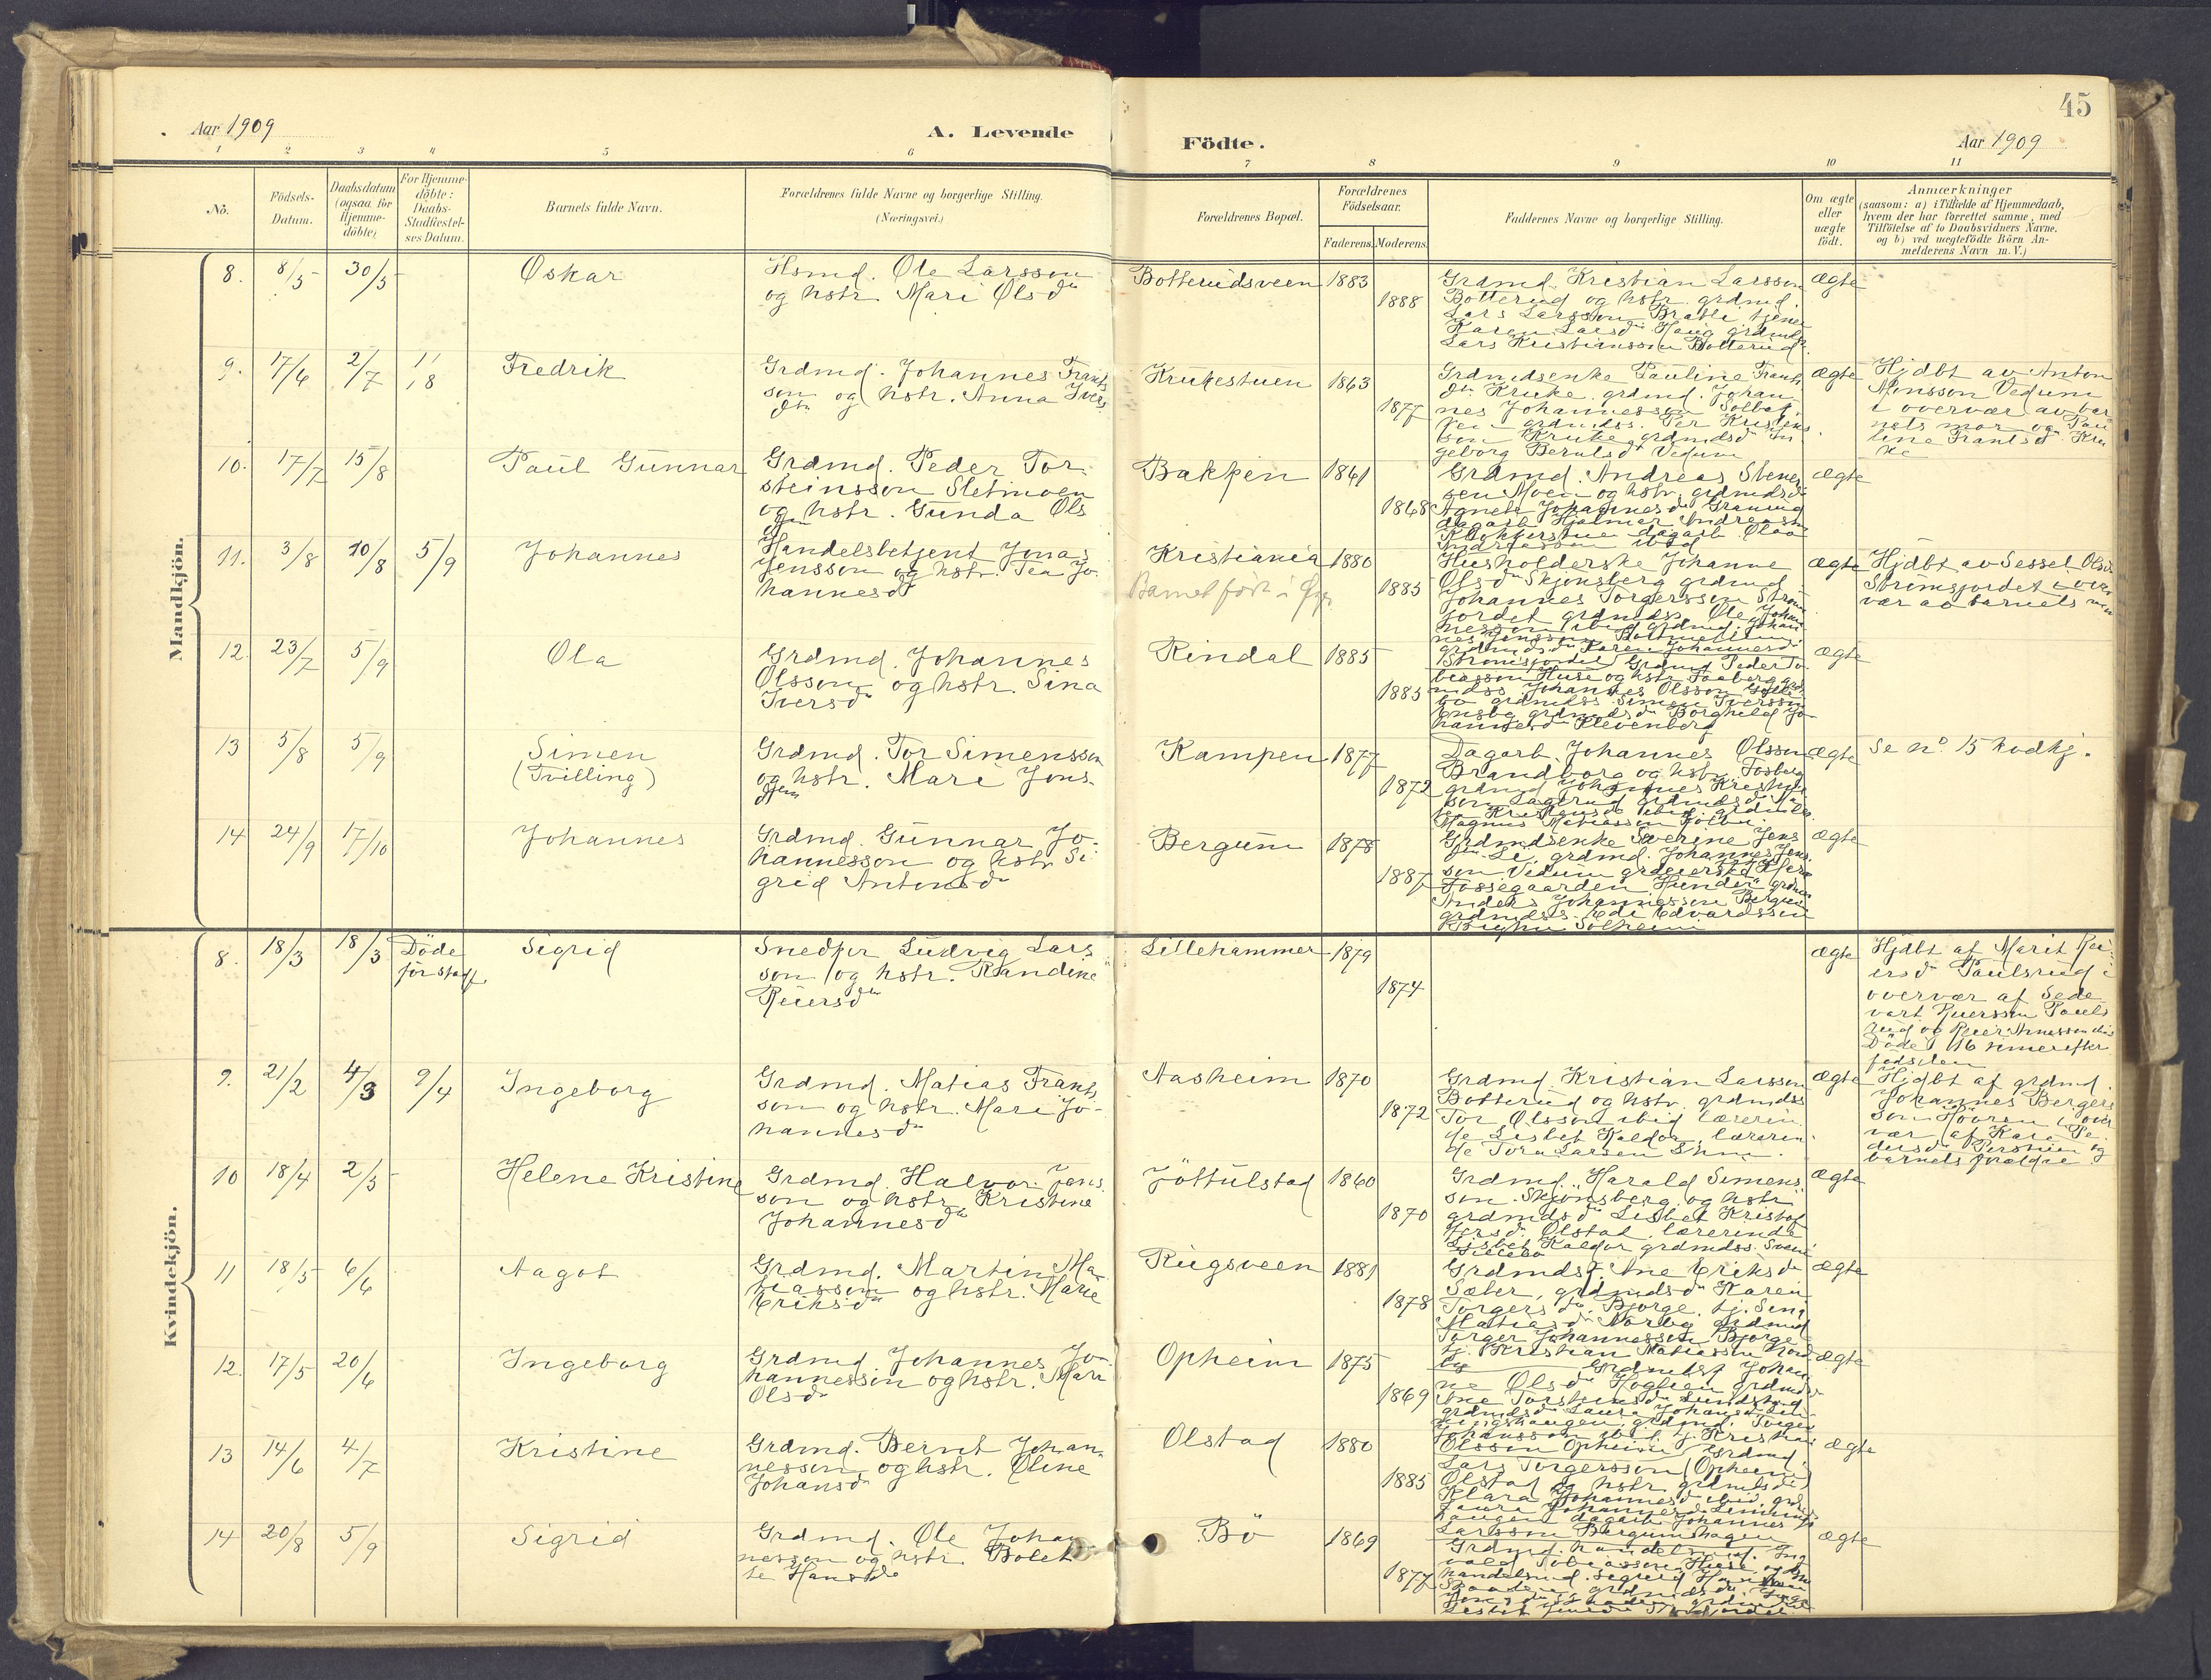 45
Aar 1909
A. Levende
Födte.
Aar 1909
1 2 3 4 5 6 7 8 9 10 11
No.
Födsels-
Datum.
Daabsdatum
(ogsaa for
Hjemme-
döbte)
For Hjemme-
döbte:
Daabs-
Stadfæstel-
ses Datum.
Barnets fulde Navn.
Forældrenes fulde Navne og borgerlige Stilling.
(Næringsvei.)
Forældrenes Bopæl.
Forældrenes
Födselsaar.
Faderens. Moderens.
Faddernes Navne og borgerlige Stilling.
Om ægte
eller
uægte
födt.
Anmærkninger
(saasom: a) i Tilfælde af Hjemmedaab,
hvem der har forrettet samme, med
Tilföielse af to Daabsvidners Navne.
og b) ved uægtefödte Börn An-
melderens Navn m. V.)
Mandkjön.
8. 8/5 30/5 Oskar
Hsmd. Ole Larsson
og hstr. Mari Olsdtr
Botterudsveen 1883
1888
Grdmd. Kristian Larsson
Botterud og hstr. grdmd.
Lars Larsson Bratli tjener
Karen Larsdtr Haug grdmds.
Lars Kristiansson Botterud
ægte
9. 17/6 2/7 1/8 Fredrik
Grdmd. Johannes Frants
son og hstr. Anna Ivers
dtr
Krukestuen 1863
1877
Grdmdsenke Pauline Frants
dtr Kruke. grdmd. Johan
nes Johannesson
grdmdss. Per Kristens
son Kruke grdmdsd In
geborg Berntsdtr Vedum
ægte
Hjdbt av Anton
Monsson Vedum
i overvær av bar
nets mor og Pau
line Frantsd. Kru
ke
10. 17/7 15/8 Paul Gunnar
Grdmd. Peder Tor
steinsson Sletmoen
og hstr. Gunda Ols
dtr
Bakken 1861
1868
Grdmd. Andreas Stener
sen Moen og hstr. grdmdsd
Agnete Johannesd
dagarb. Hjalmar Andreassen
dagarb. Olav
Andreassen ibid
ægte
11. 3/8 10/8 5/9 Johannes
Handelsbetjent Jonas
Jensson og hstr. Tea Jo
hannesd
Kristiania 1880
Barnet født i
1885
Husholderske Johanne
Olsdtr Skjønsberg grdmd
Johannes Torgersson Ström
jordet grdmdss. Ole Johan
nesson ibid grdmd. Johan
nes Jensson
grdmdsdtr Karen Johannesd
Strömsjordet
ægte
Hjdbt av Sessel Olsd
Strömsjordet i over
vær av barnets mor
12. 23/7 5/9 Ola
Grdmd. Johannes
Olsson og hstr. Sina
Iversdtr
Rindal 1885
1885
Grdmd Peder To
biasson Huse og hstr. Faaberg grd
mdss. Johannes Olsson
grdmdss. Simen Iversson
grdmdsdtr Borghild Jo
hannesd Klevenberg
ægte
13 5/8 5/9 Simen
(Tvilling)
Grdmd. Tor Simensson
og hstr. Mari Jons
dtr
Kampen 1877
1872
Dagarb. Johannes Olsson
Brandborg og hstr. Fosberg
grdmd Johannes Kristens
son Lagerud grdmdsd
Magnus Matiassen
ægte
Se no. 15 kvdkj.
14 24/9 17/10 Johannes
Grdmd. Gunnar Jo-
hannesson og hstr. Si
grid Antonsdtr
Bergum 1878
1887
Grdmdsenke Severine Jens
dtr Li, grdmd. Johannes Jens
son Vedum
Fossegaarden
Anders Johannesson Bergum
grdmdss. Edvardsson
Solheim
ægte
Kvindekjön.
8. 18/3 18/3 Döde
för stadf. Sigrid
Snedker Ludvig Lars
son og hstr. Randine
Reiersdtr
Lillehammer 1879
1874
ægte
Hjdbt af Marit Rei
ersdtr Paulsrud i
overvær af Sede
vart Reiersson Pauls
rud og Reier Arnesson ibid
Döde 16 timer efter
födselen
9. 21/2 4/3 9/4 Ingeborg
Grdmd. Matias Frants
son og hstr. Mari Jo-
hannesdtr
Aasheim 1870
1872
Grdmd. Kristian Larsson
Botterud og hstr. grdmdss
Tor Olsson ibid lærerin
de Lisbet Kaldor, lærerin
de Tora Larsen
ægte
Hjdbt af grdmd.
Johannes Bergers
son Hövren i over
vær af Kari Pe
dersdtr Perstuen og
barnets forældre
10 18/4 2/5 Helene Kristine
Grdmd. Halvor Jens
son og hstr. Kristine
Johannesdtr
Jöttulstad 1860
1870
Grdmd. Harald Simens
son Skjønsberg og hstr.
grdmdsdtr Lisbet Kristof
fersdtr Olstad, lærerinde
Lisbet Kaldor grdmdss. Svend
ægte
11 18/5 6/6 Aagot
Grdmd. Martin Ma
tiasson og hstr. Marie
Eriksdtr
Rugsveen 1881
1878
Grdmdsf. Ane Eriksdtr
Sæter, grdmdsdtr Karen
Torgersdtr Bjørge, tj. Seni
Matiasdtr Norby grdmd
Torger Johannesson Bjørge
tj. Kristian Matiassen Nord
by
ægte
12. 17/5 20/6 Ingeborg
Grdmd. Johannes Jo-
hannesson og hstr. Mari
Olsdtr
Opheim 1875
1869
Grdmdsf Johan
ne Olsdtr Haglien grdmdsd
Ane Torsteinsdtr
grdmdsdtr Laura Johansd
grdmd. Torger
Johansson ibid, tj. Kristian
Olsson Opheim
ægte
13 14/6 4/7 Kristine
Grdmd. Bernt Johan
nesson og hstr. Oline
Johansdtr
Olstad 1880
1885
Grdmd.
Lars Torgersson (Opheim)
Olstad og hstr. grdmdsd
Klara Johannesd ibid. grd
dagarb. Johannes
Larsson Bergumshagen
ægte
14 20/8 5/9 Sigrid
Grdmd. Ole Johan
nesson og hstr. Bolet
te Hansdtr
Bö 1869
1877
Grdmd. handelsmd. Ing
vald Tobiasson Huse og hstr
handelsmd. Sigurd
ægte